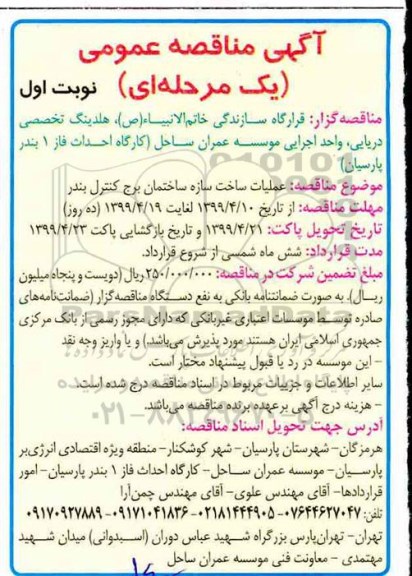 آگهی مناقصه عمومی
(یک مرحله‌ای) نوبت اول
مناقصه‌گزار: قرارگاه سازندگی خاتم‌الانبیاء(ص)، هلدینگ تخصصی
دریایی، واحد اجرایی موسسه عمران ساحل (کارگاه احداث فاز ۱ بندر
پارسیان)
موضوع مناقصه: عملیات ساخت سازه ساختمان برج کنترل بندر
مهلت مناقصه: از تاریخ ۱۳۹۹/۴/۱۰ لغایت ۱۳۹۹/۴/۱۹ (ده روز)
تاریخ تحویل پاکت: ۱۳۹۹/۴/۲۱ و تاریخ بازگشایی پاکت ۱۳۹۹/۴/۲۳
مدت قرارداد: شش ماه شمسی از شروع قرارداد.
مبلغ تضمین شرکت در مناقصه: ۲۵۰/۰۰۰/۰۰۰ ریال (دویست و پنجاه میلیون
ریال)، به صورت ضمانتنامه بانکی به نفع دستگاه مناقصه‌گزار (ضمانت‌نامه‌های
صادره توسط موسسات اعتباری غیربانکی که دارای مجوز رسمی از بانک مرکزی
جمهوری اسلامی ایران هستند مورد پذیرش می‌باشد.) و یا واریز وجه نقد
- این موسسه در رد یا قبول پیشنهاد مختار است.
سایر اطلاعات و جزییات مربوط در اسناد مناقصه درج شده است.
- هزینه درج آگهی برعهده برنده مناقصه می‌باشد.
آدرس جهت تحویل اسناد مناقصه:
هرمزگان- شهرستان پارسیان- شهر کوشکنار- منطقه ویژه اقتصادی انرژی‌بر
پارسیان- موسسه عمران ساحل- کارگاه احداث فاز ۱ بندر پارسیان- امور
قراردادها- آقای مهندس علوی- آقای مهندس چمن‌آرا
تلفن: ۰۷۶۴۴۶۲۷۰۴۷- ۰۲۱۸۱۴۴۴۹۰۵- ۰۹۱۷۱۰۴۱۸۳۶- ۰۹۱۷۰۹۲۷۸۸۹
تهران- تهران‌پارس بزرگراه شهید عباس دوران (استیدوانی) میدان شهید
مهتمدی - معاونت فنی موسسه عمران ساحل